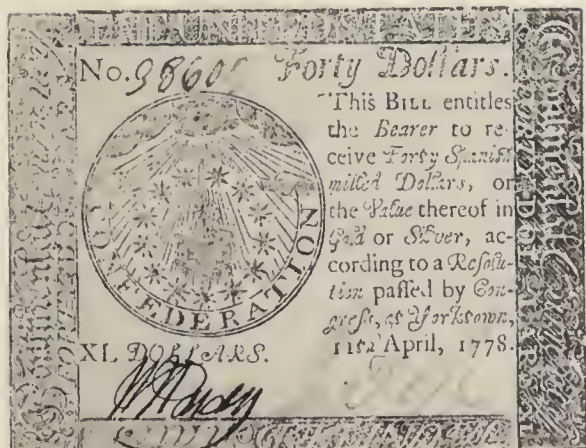 THE UNITED STATES
No. 98601 Forty Dollars.
This BILL entitles
the Bearer to re-
ceive Forty Spanish
milled Dollars, or
the Value thereof in
Gold or Silver, ac-
cording to a Resolu-
tion passed by Con-
gress, at Yorktown,
11th April, 1778.
CONFEDERATION
XL DOLLARS.
Continental